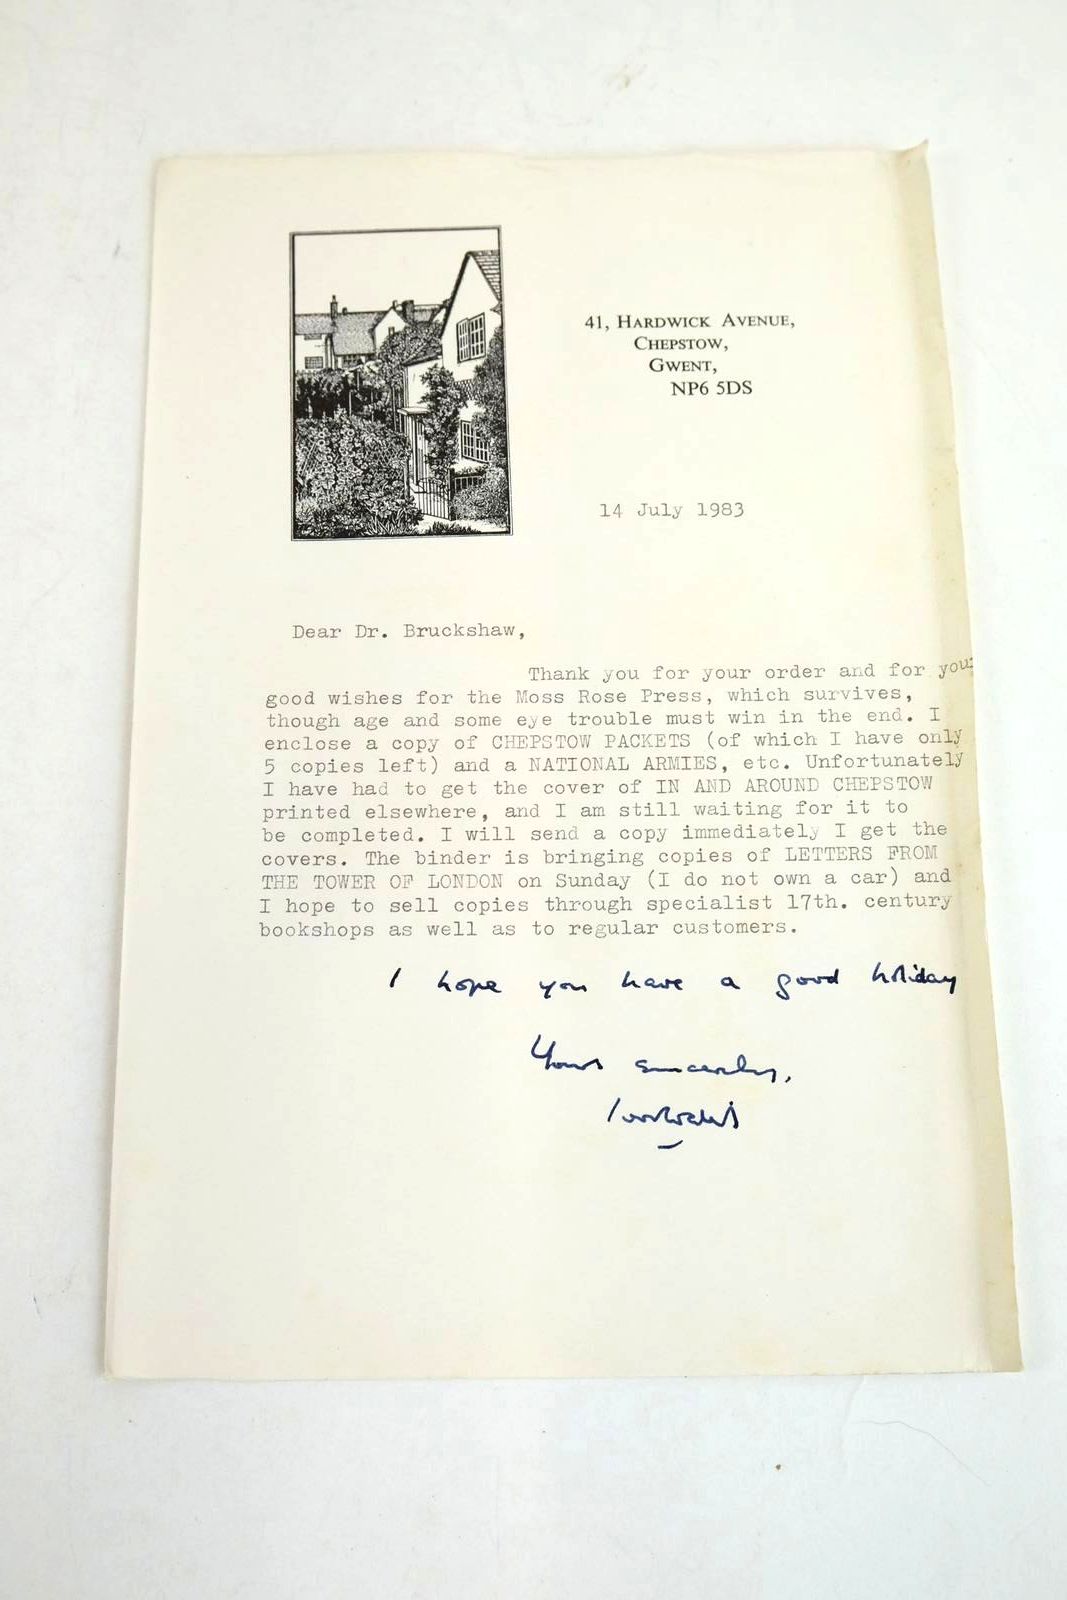 41, HARDWICK AVENUE,
CHEPSTOW,
GWENT,
NP6 5DS
14 July 1983
Dear Dr. Bruckshaw,
Thank you for your order and for your
good wishes for the Moss Rose Press, which survives,
though age and some eye trouble must win in the end. I
enclose a copy of CHEPSTOW PACKETS (of which I have only
5 copies left) and a NATIONAL ARMIES, etc. Unfortunately
I have had to get the cover of IN AND AROUND CHEPSTOW
printed elsewhere, and I am still waiting for it to
be completed. I will send a copy immediately I get the
covers. The binder is bringing copies of LETTERS FROM
THE TOWER OF LONDON on Sunday (I do not own a car) and
I hope to sell copies through specialist 17th. century
bookshops as well as to regular customers.
I hope you have a good holiday
Yours sincerely,